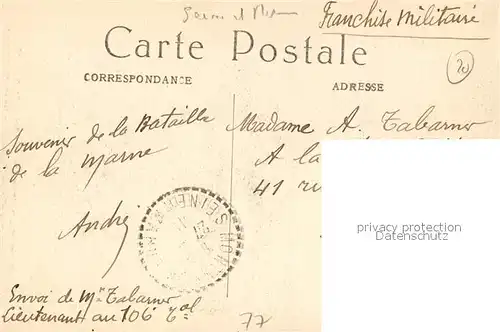 Seine et
Franchise Militaire
Carte Postale
CORRESPONDANCE
ADRESSE
20
Souvenir de la Bataille
de la Marne
André
Madame A. Tabarner
A la
41 ru
privacy protection
Datenschutz
Envoi de Mr Tabarner
Lieutenant au 106e
77